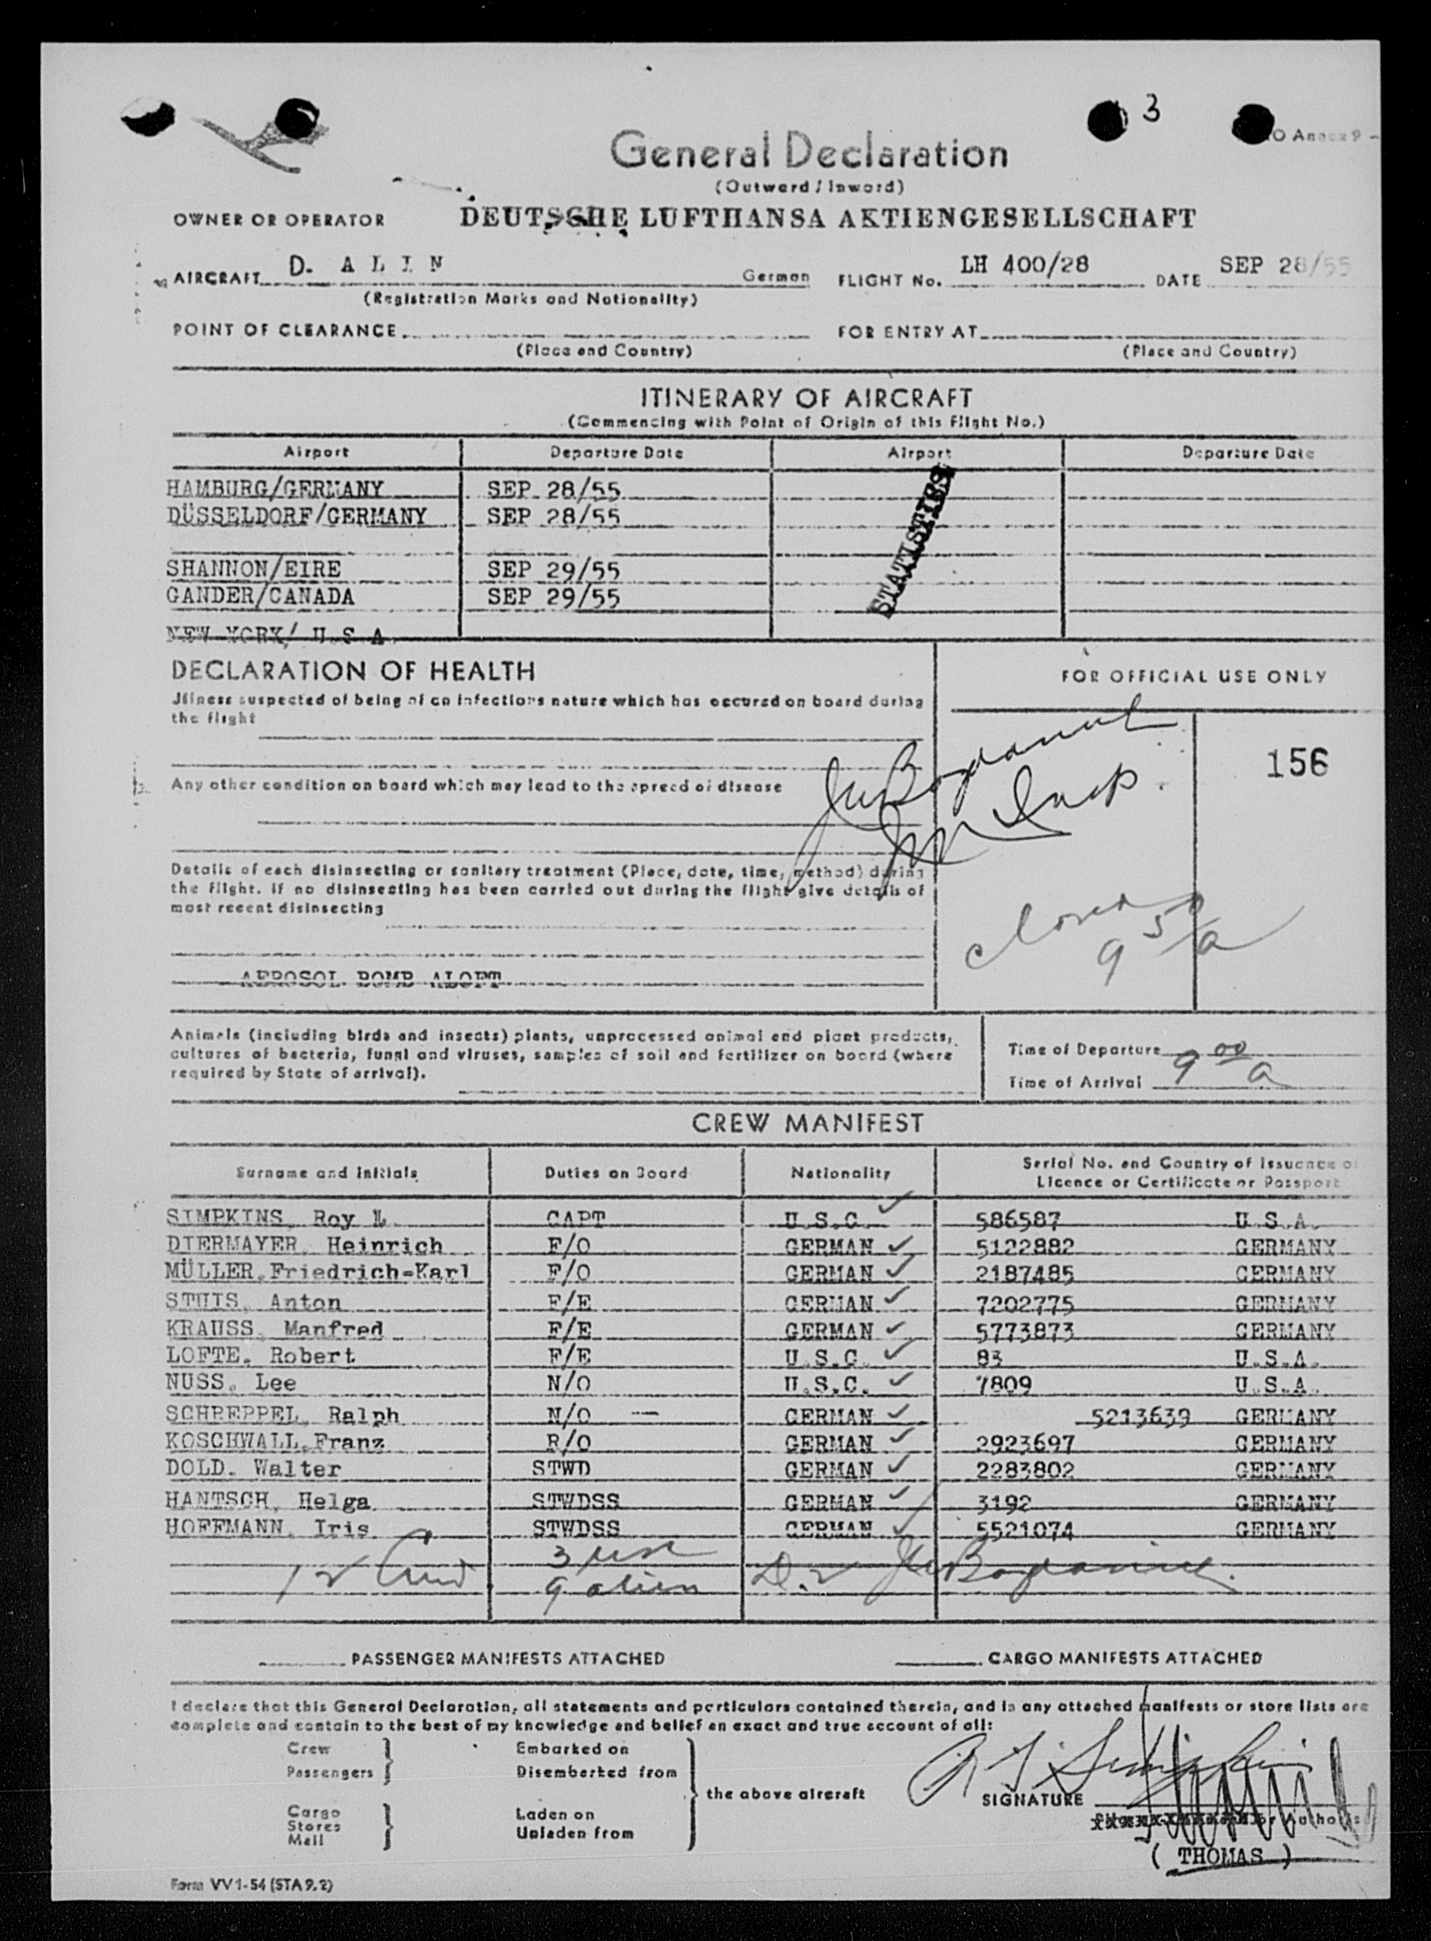 3
Annex 9 -
General Declaration
(Outward / Inward)
OWNER OR OPERATOR DEUTSCHE LUFTHANSA AKTIENGESELLSCHAFT
AIRCRAFT D. A L I N German FLIGHT No. LH 400/28 DATE SEP 28/55
(Registration Marks and Nationality)
POINT OF CLEARANCE FOR ENTRY AT
(Place and Country) (Place and Country)
ITINERARY OF AIRCRAFT
(Commencing with Point of Origin of this Flight No.)
Airport Departure Date Airport Departure Date
HAMBURG/GERMANY SEP 28/55
DÜSSELDORF/GERMANY SEP 28/55
SHANNON/EIRE SEP 29/55
GANDER/CANADA SEP 29/55
NEW YORK/ U.S.A.
STATISTICS
DECLARATION OF HEALTH FOR OFFICIAL USE ONLY
Illness suspected of being of an infectious nature which has occured on board during
the flight
156
Any other condition on board which may lead to the spread of disease
Insp.
Details of each disinsecting or sanitary treatment (Place, date, time, method) during
the flight. If no disinsecting has been carried out during the flight give details of
most recent disinsecting
closed
9 50/a
AEROSOL BOMB ALOFT
Animals (including birds and insects) plants, unprocessed animal and plant products,
cultures of bacteria, fungi and viruses, samples of soil and fertilizer on board (where
required by State of arrival).
Time of Departure
Time of Arrival 9 00 a
CREW MANIFEST
Surname and Initials Duties on Board Nationality Serial No. and Country of Issuance of
Licence or Certificate or Passport
SIMPKINS, Roy L. CAPT U.S.C. 586587 U.S.A.
DIERMAYER, Heinrich F/O GERMAN 5122882 GERMANY
MÜLLER,Friedrich-Karl F/O GERMAN 2187485 GERMANY
STUIS, Anton F/E GERMAN 7202775 GERMANY
KRAUSS, Manfred F/E GERMAN 5773873 GERMANY
LOFTE, Robert F/E U.S.C. 83 U.S.A.
NUSS, Lee N/O U.S.C. 7809 U.S.A.
SCHREPPEL, Ralph N/O — GERMAN 5213639 GERMANY
KOSCHWALL,Franz R/O GERMAN 2923697 GERMANY
DOLD, Walter STWD GERMAN 2283802 GERMANY
HANTSCH, Helga STWDSS GERMAN 3192 GERMANY
HOFFMANN, Iris STWDSS GERMAN 5521074 GERMANY
12 3 usc
9 alien
PASSENGER MANIFESTS ATTACHED CARGO MANIFESTS ATTACHED
I declare that this General Declaration, all statements and particulars contained therein, and in any attached manifests or store lists are
complete and contain to the best of my knowledge and belief an exact and true account of all:
Crew Embarked on
Passengers Disembarked from
the above aircraft
Cargo Laden on
Stores Unladen from
Mail
SIGNATURE
( THOMAS )
Form VV 1-54 (STA 9.2)